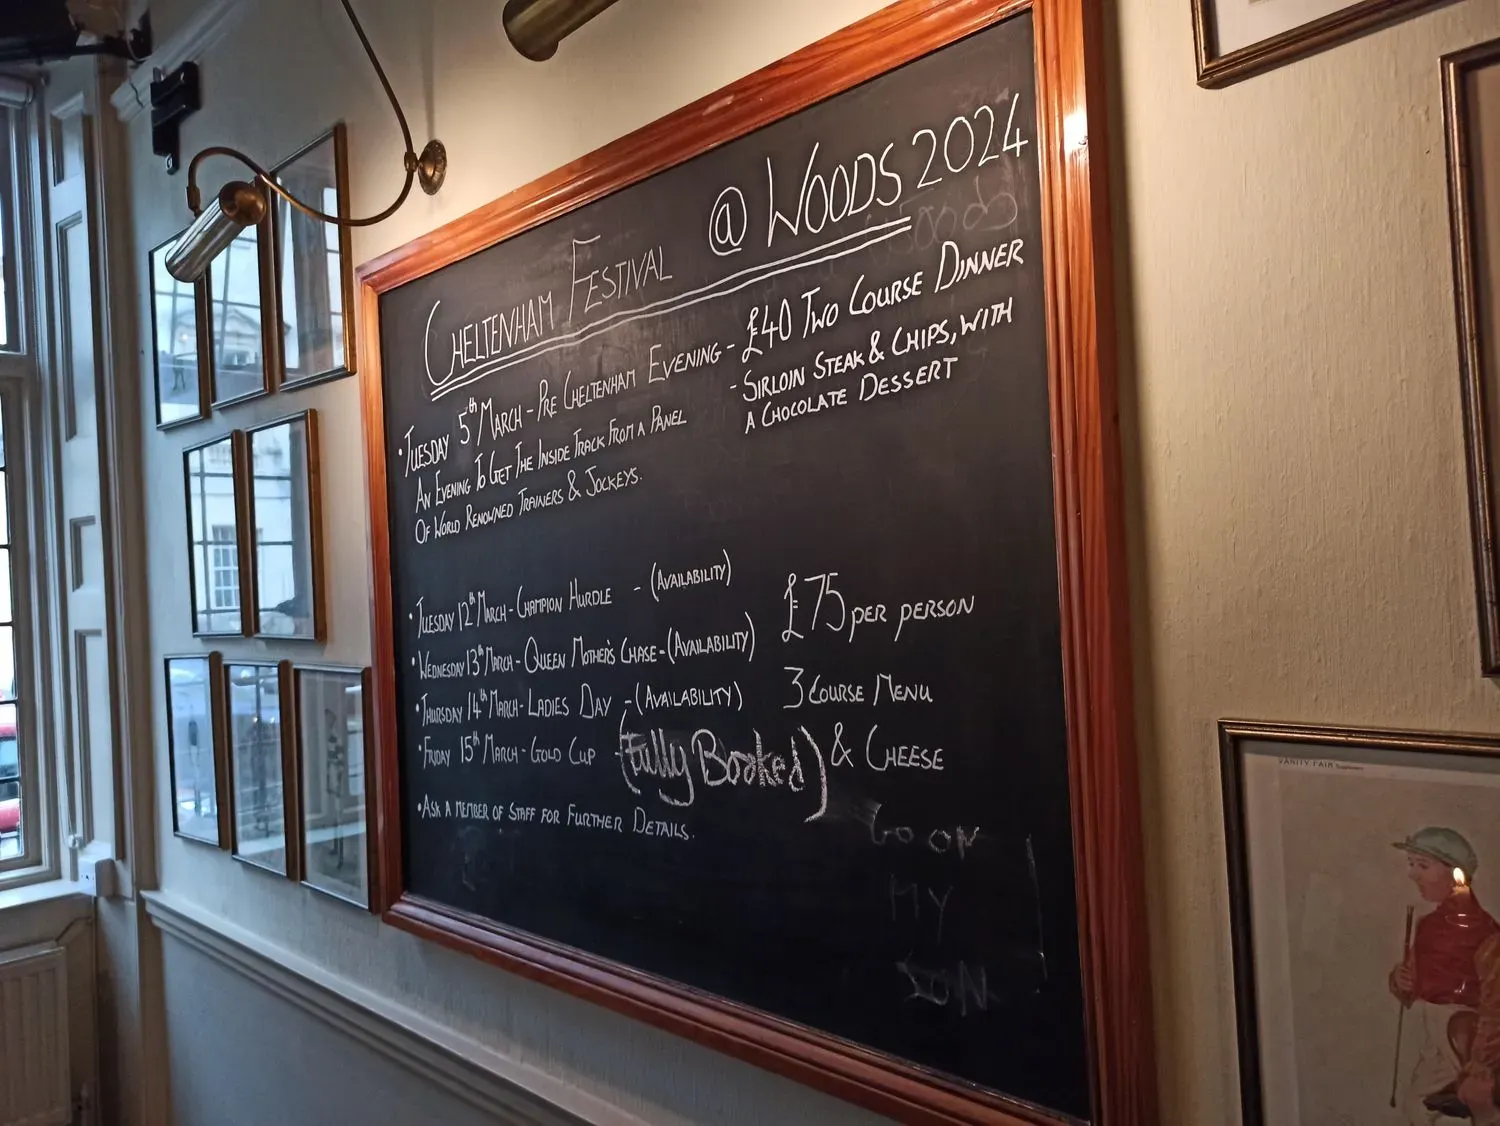 CHELTENHAM FESTIVAL @ WOODS 2024
• TUESDAY 5th MARCH - PRE CHELTENHAM EVENING - £40 TWO COURSE DINNER
AN EVENING TO GET THE INSIDE TRACK FROM A PANEL
OF WORLD RENOWNED TRAINERS & JOCKEYS.
- SIRLOIN STEAK & CHIPS, WITH
A CHOCOLATE DESSERT
• TUESDAY 12th MARCH - CHAMPION HURDLE - (AVAILABILITY)
• WEDNESDAY 13th MARCH - QUEEN MOTHER'S CHASE - (AVAILABILITY)
• THURSDAY 14th MARCH - LADIES DAY - (AVAILABILITY)
• FRIDAY 15th MARCH - GOLD CUP - (Fully Booked)
• ASK A MEMBER OF STAFF FOR FURTHER DETAILS.
£75 PER PERSON
3 COURSE MENU
& CHEESE
GO ON
MY
SON
VANITY FAIR